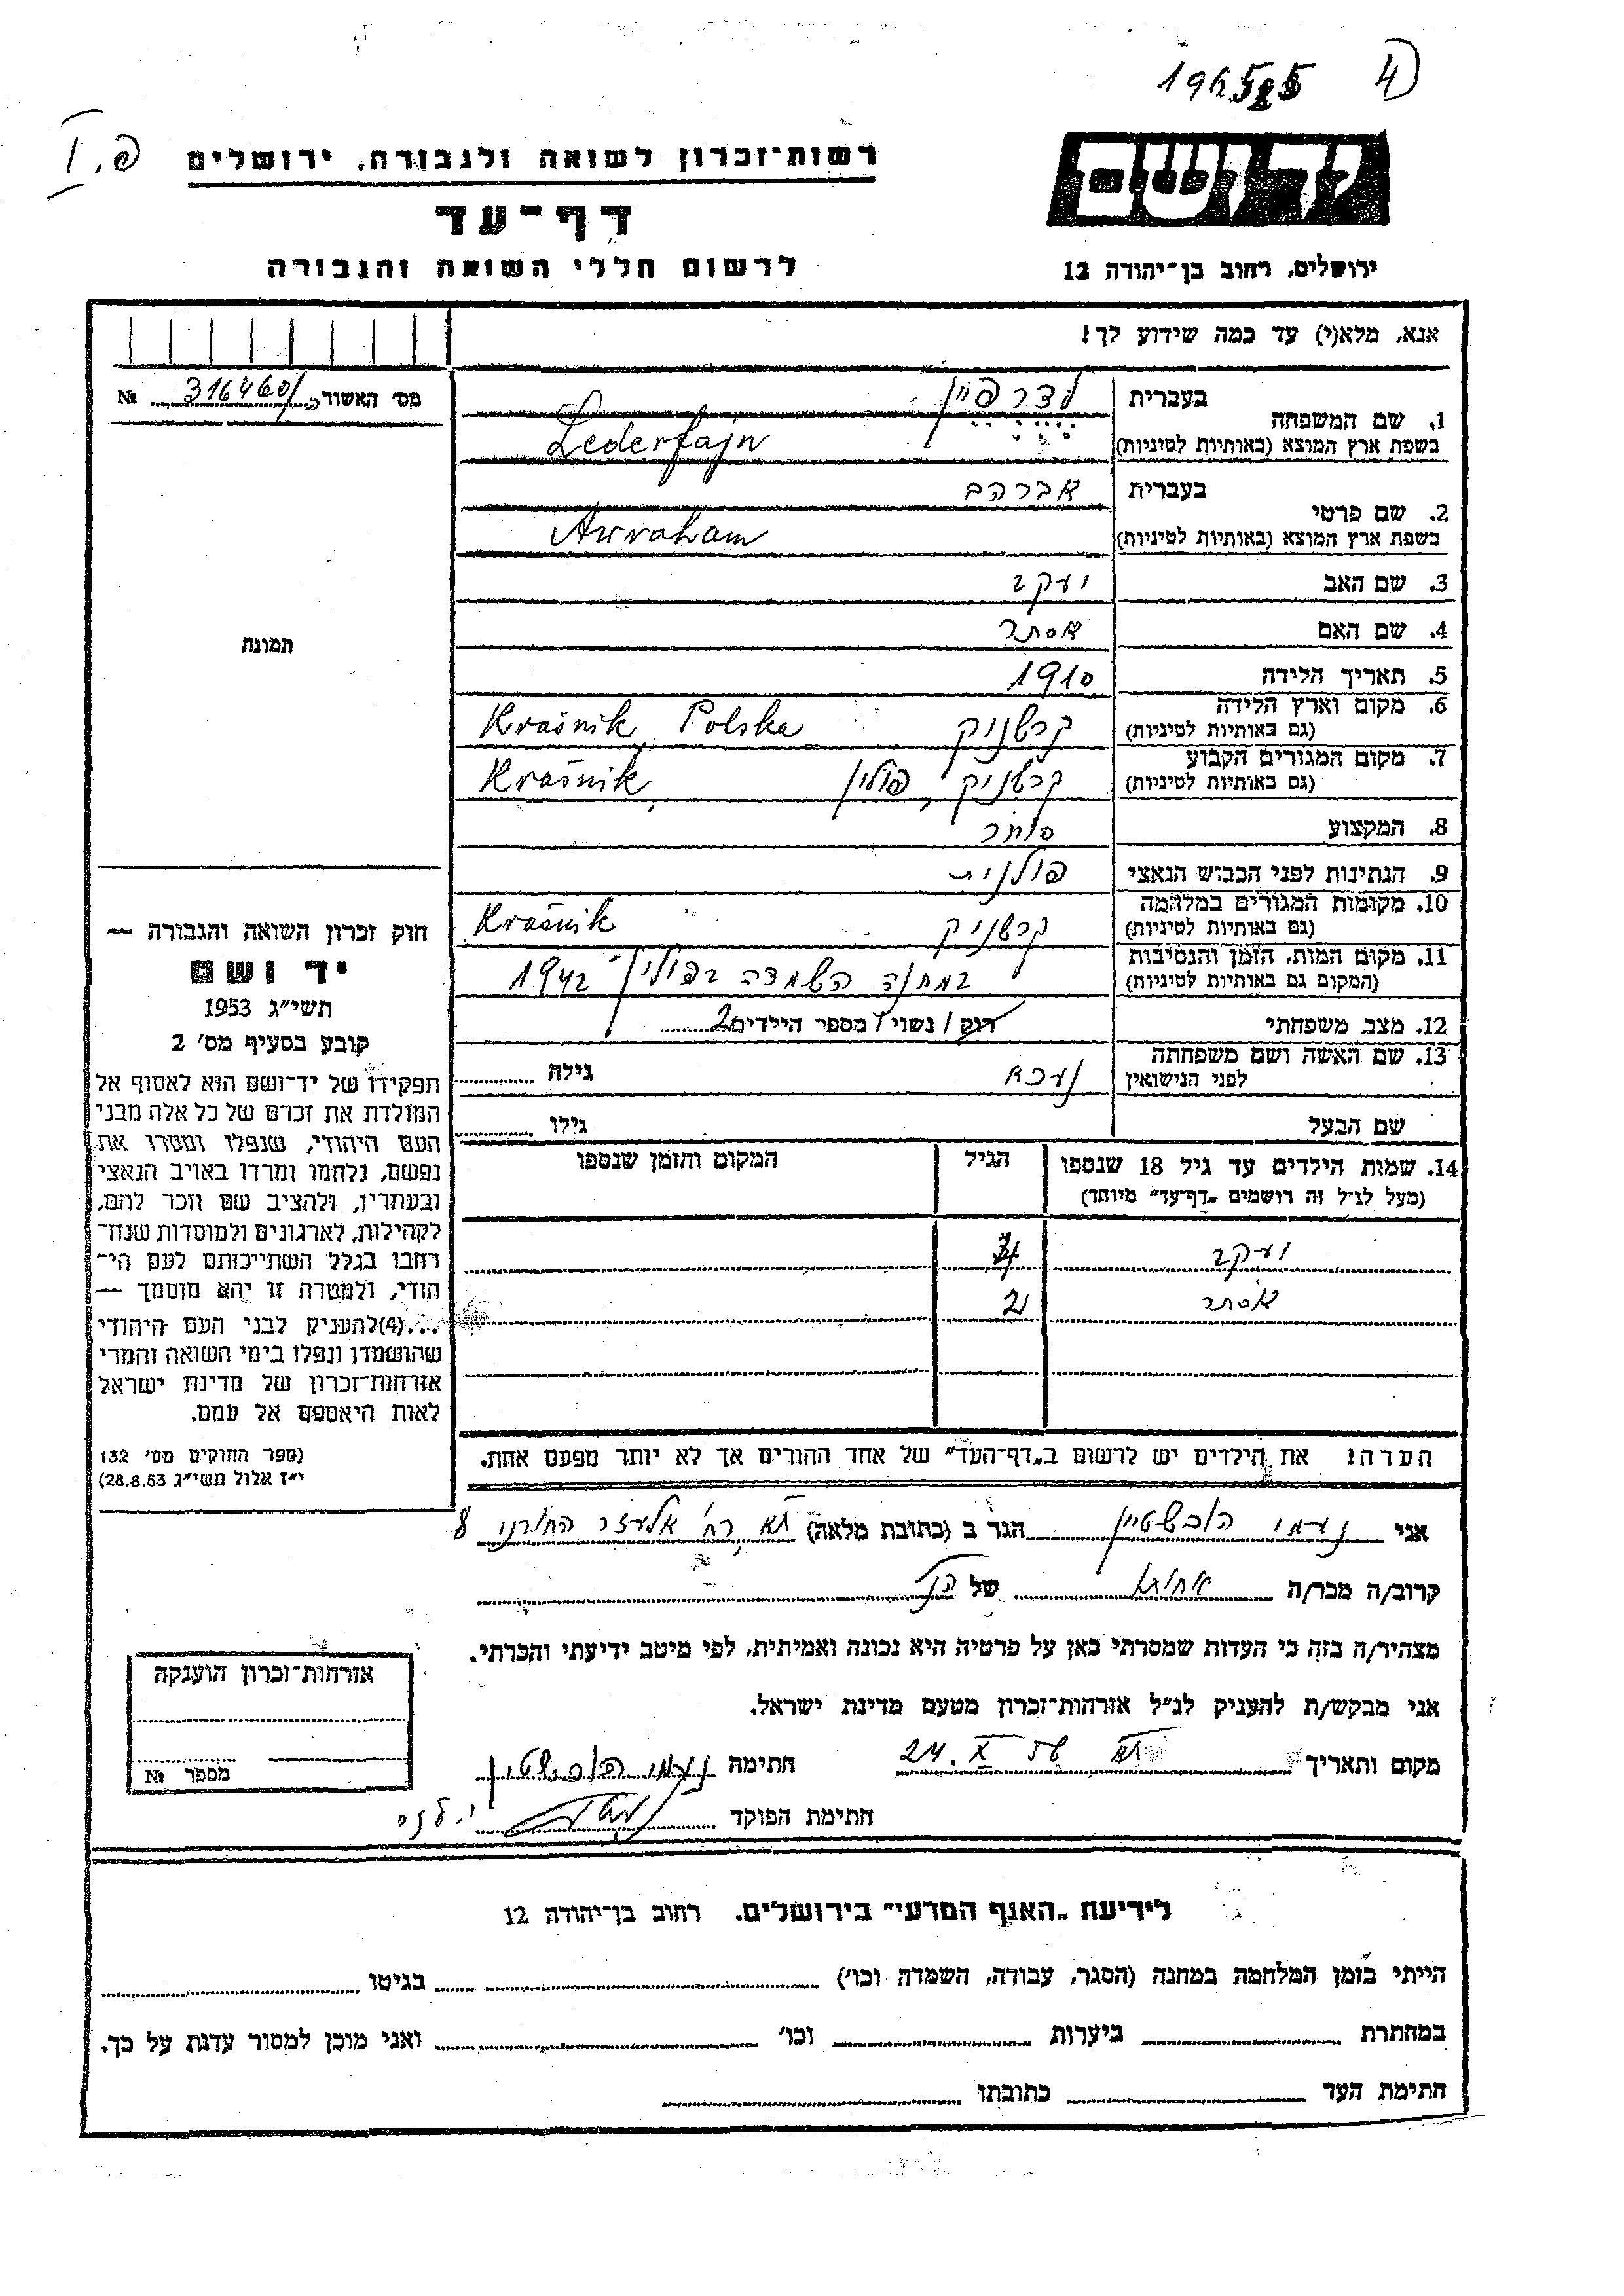 196585 4
פ. I
רשות־זכרון לשואה ולגבורה, ירושלים
יד ושם
דף־עד
לרשום חללי השואה והגבורה
ירושלים, רחוב בן־יהודה 12
אנא, מלא(י) עד כמה שידוע לך!
מס׳ האשור 316460 №
1. שם המשפחה בעברית לדרפיין
בשפת ארץ המוצא (באותיות לטיניות) Lederfajn
2. שם פרטי בעברית אברהם
בשפת ארץ המוצא (באותיות לטיניות) Awraham
3. שם האב יעקב
4. שם האם אסתר
5. תאריך הלידה 1910
6. מקום וארץ הלידה (גם באותיות לטיניות) קרשניק Kraśnik Polska
7. מקום המגורים הקבוע (גם באותיות לטיניות) קרשניק, פולין Kraśnik,
8. המקצוע סוחר
9. הנתינות לפני הכבוש הנאצי פולנית
10. מקומות המגורים במלחמה (גם באותיות לטיניות) קרשניק Kraśnik
11. מקום המות, הזמן והנסיבות (המקום גם באותיות לטיניות) במחנה השמדה בפולין 1942
12. מצב משפחתי רוק / נשוי / מספר הילדים 2
13. שם האשה ושם משפחתה לפני הנישואין גילה
שם הבעל גילו
14. שמות הילדים עד גיל 18 שנספו הגיל המקום והזמן שנספו
(מעל לגיל זה רושמים „דף־עד״ מיוחד)
יעקב
אסתר 2
הערה! את הילדים יש לרשום ב„דף־העד״ של אחד ההורים אך לא יותר מפעם אחת.
תמונה
חוק זכרון השואה והגבורה —
יד ושם
תשי״ג 1953
קובע בסעיף מס׳ 2
תפקידו של יד־ושם הוא לאסוף אל
המולדת את זכרם של כל אלה מבני
העם היהודי, שנפלו ומסרו את
נפשם, נלחמו ומרדו באויב הנאצי
ובעוזריו, ולהציב שם וזכר להם,
לקהילות, לארגונים ולמוסדות שנח־
רחבו בגלל השתייכותם לעם הי־
הודי, ולמטרה זו יהא מוסמך —
...(4) להעניק לבני העם היהודי
שהושמדו ונפלו בימי השואה והמרי
אזרחות־זכרון של מדינת ישראל
לאות היאספם אל עמם.
(ספר החוקים מס׳ 132
י״ז אלול תשי״ג 28.8.53)
אני נעמי הגר ב (כתובת מלאה) תא רח׳ אלעזר
קרוב/ה מכר/ה אחות של הנ״ל
מצהיר/ה בזה כי העדות שמסרתי כאן על פרטיה היא נכונה ואמיתית, לפי מיטב ידיעתי והכרתי.
אני מבקש/ת להעניק לנ״ל אזרחות־זכרון מטעם מדינת ישראל.
מקום ותאריך תא 24. X 56 חתימה נעמי
חתימת הפוקד
אזרחות־זכרון הוענקה
מספר №
לידיעת „האגף המדעי״ בירושלים, רחוב בן־יהודה 12
הייתי בזמן המלחמה במחנה (הסגר, עבודה, השמדה וכו׳) בגיטו
במחתרת ביערות וכו׳ ואני מוכן למסור עדות על כך.
חתימת העד כתובתו